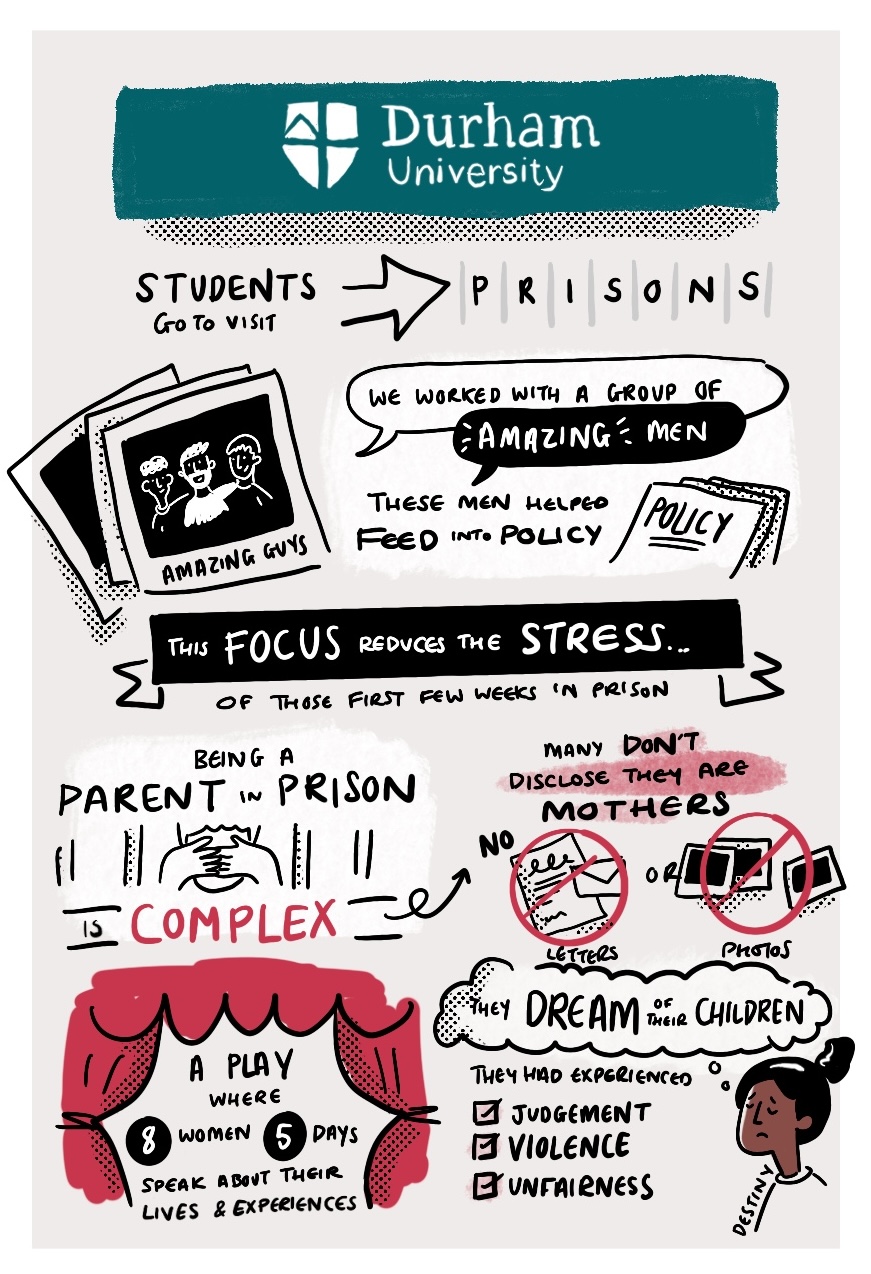 Durham
University
STUDENTS
GO TO VISIT
PRISONS
WE WORKED WITH A GROUP OF
AMAZING MEN
THESE MEN HELPED
FEED INTO POLICY
POLICY
AMAZING GUYS
THIS FOCUS REDUCES THE STRESS...
OF THOSE FIRST FEW WEEKS IN PRISON
BEING A
PARENT IN PRISON
IS COMPLEX
MANY DON'T
DISCLOSE THEY ARE
MOTHERS
NO
OR
LETTERS
PHOTOS
THEY DREAM OF THEIR CHILDREN
THEY HAD EXPERIENCED
JUDGEMENT
VIOLENCE
UNFAIRNESS
DESTINY
A PLAY
WHERE
8 WOMEN 5 DAYS
SPEAK ABOUT THEIR
LIVES & EXPERIENCES